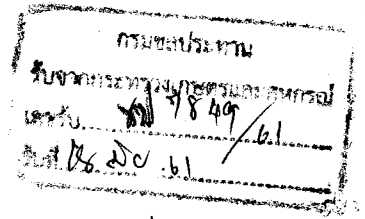 กรมชลประทาน
รับจากกระทรวงเกษตรและสหกรณ์
เลขรับ 7849/61
วันที่ .61